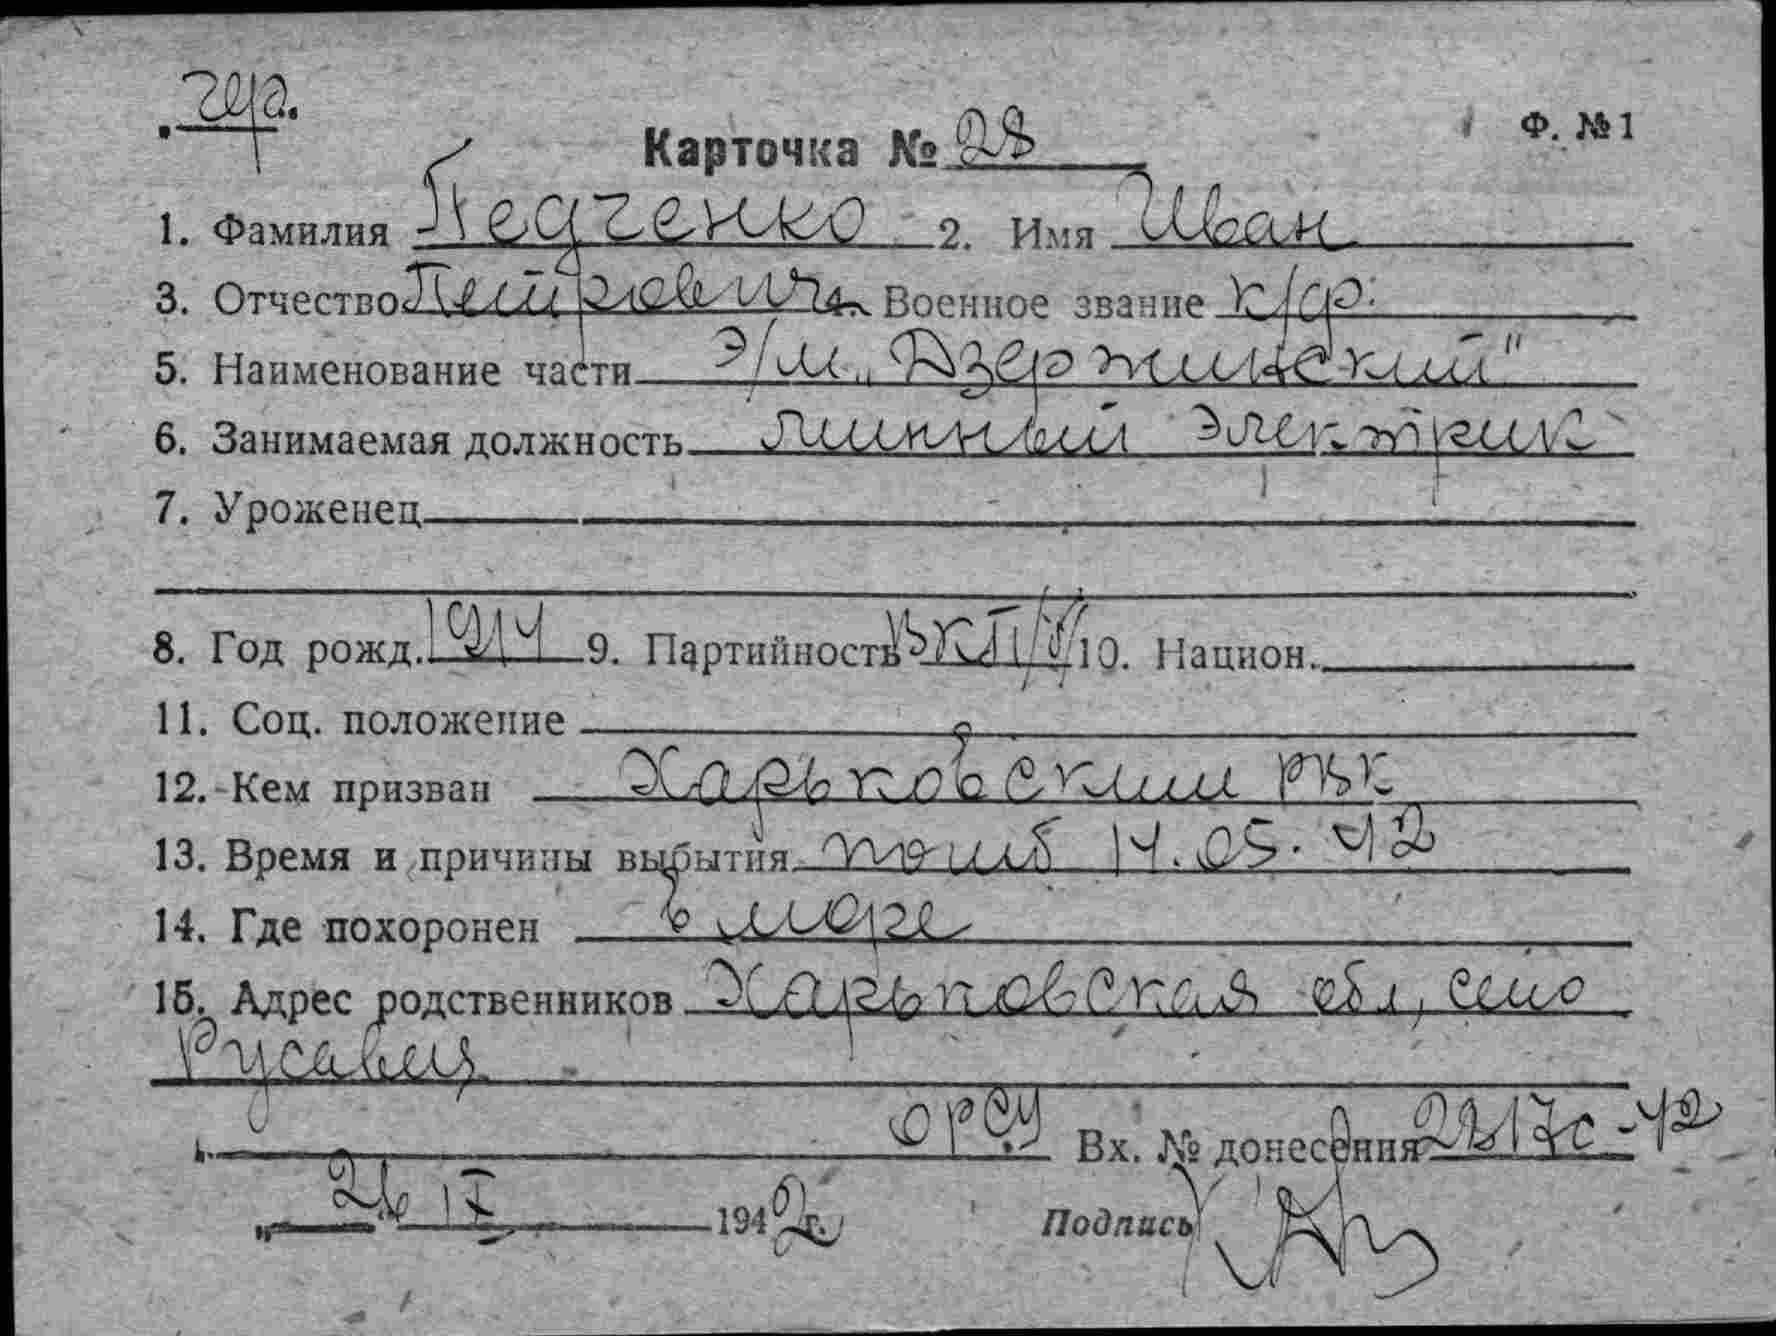 чф.
Карточка № 28 Ф. №1
1. Фамилия Педченко 2. Имя Иван
3. Отчество Петрович 4. Военное звание к/ф.
5. Наименование части Э/М „Дзержинский"
6. Занимаемая должность минный электрик
7. Уроженец
8. Год рожд. 1914 9. Партийность ВКП/б/ 10. Национ.
11. Соц. положение
12. Кем призван Харьковским РВК
13. Время и причины выбытия погиб 14.05.42
14. Где похоронен в море
15. Адрес родственников Харьковская обл, село
ОРСУ Вх. № донесения 2217с-42
„26" IX 1942г. Подпись